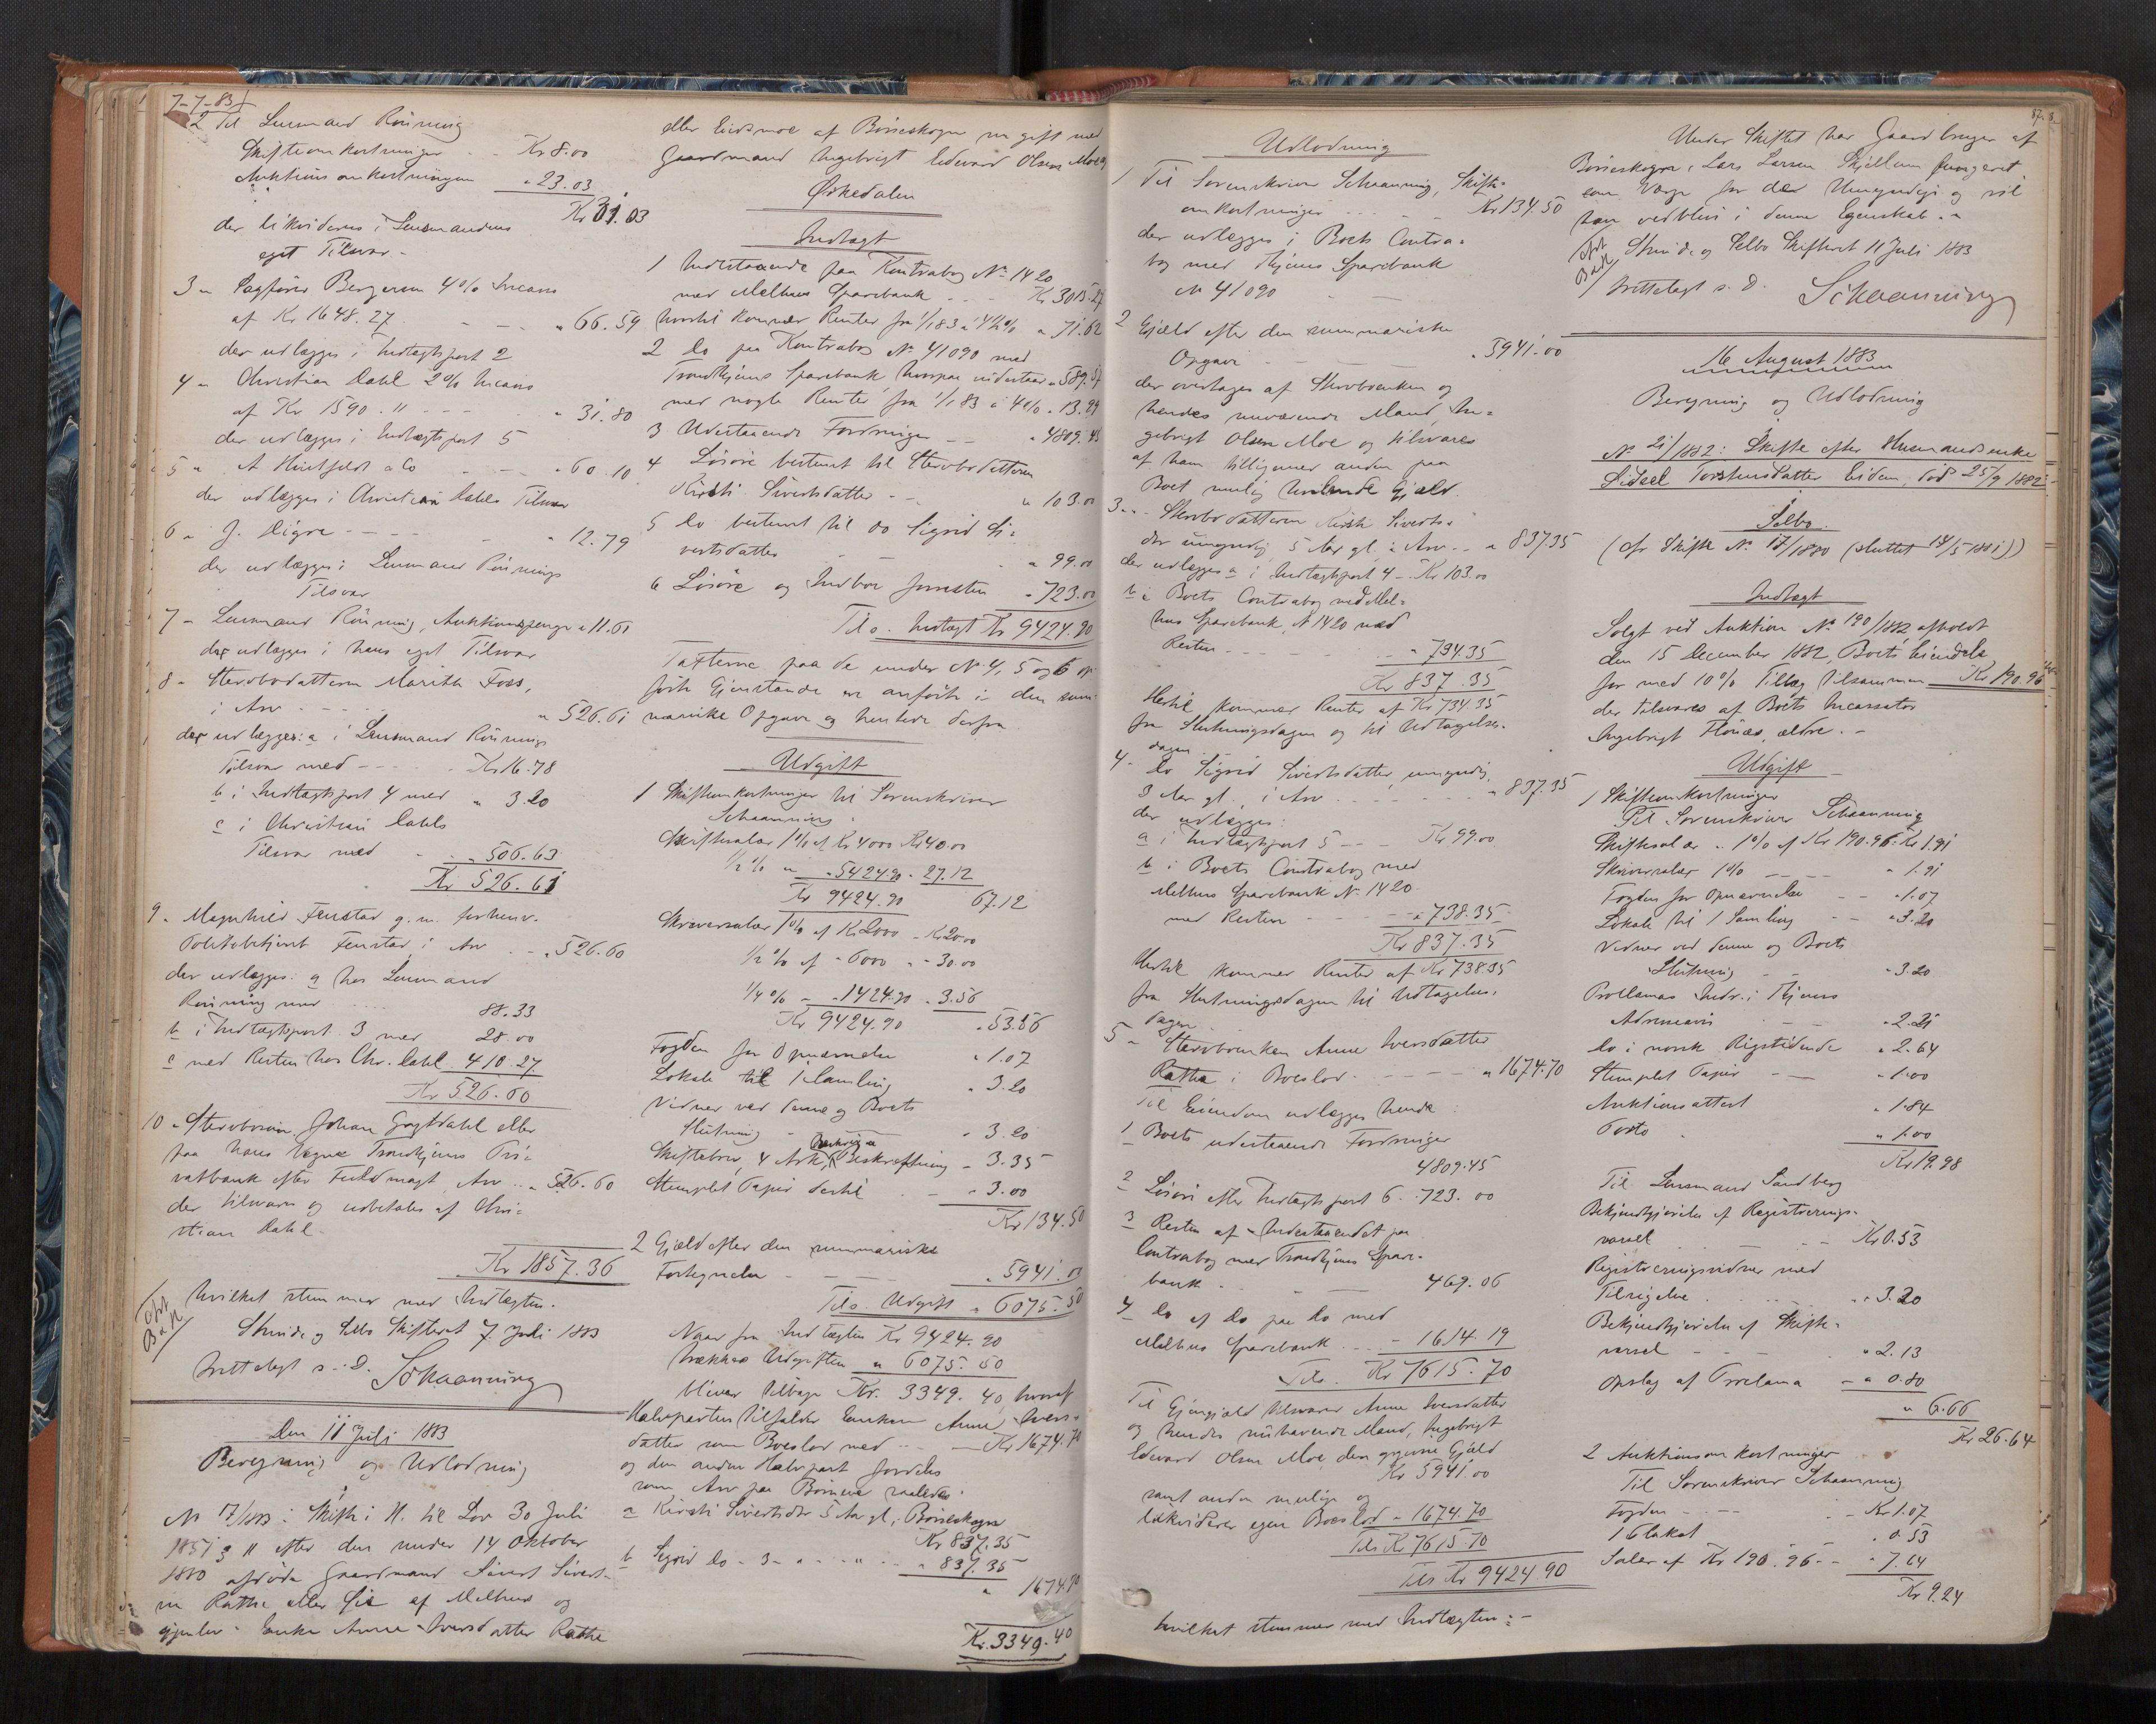 7-7-83
2 Til Lensmand Rönning
Skifteomkostninger - - Kr 8.00
Auktionsomkostningen " 23.03
Kr 31.03
der likvideres i Lensmandens
eget Tilsvar -
3 " Sagfører Bergersen 4% Incasso
af Kr 1648.27 - - - " 66.59
der udlægges i Indtægtspost 2
4 " Christian Dahl 2% Incasso
af Kr 1590." - - - " 31.80
der udlægges i Indtægtspost 5
5 " A Huitfeldt & Co - - - " 60.10
der udlægges i Christian Dahls Tilsvar
6 " J. Digre - - - - " 12.79
der udlægges i Lensmand Rönnings
Tilsvar
7 - Lensmand Rönning, Auktionspenge " 11.61
der udlægges i hans eget Tilsvar
8 - Stervbodatteren Marith Foss,
i Arv - - - - " 526.61
der udlægges: a i Lensmand Rönnings
Tilsvar med - - - - Kr 16.78
b i Indtægtspost 4 med " 3.20
c i Christian Dahls
Tilsvar med - " 506.63
Kr 526.61
9 - Magnhild Fenstad g.m. forhenv.
Politibetjent Fenstad, i Arv - - " 526.60
der udlægges: a hos Lensmand
Rönning med 88.33
b i Indtægtspost 3 med 28.00
c med Resten hos Chr. Dahl 410.27
Kr 526.60
10 " Stervbosön Johan Gagtdahl eller
paa hans Vegne Trondhjems Pri=
vatbank efter Fuldmagt, Arv - " 526.60
der tilsvares og udbetales af Chri=
stian Dahl -
Kr 1857.36
hvilket stemmer med Indtægten.
Strinde og Selbo Skifteret 7 Juli 1883
Schaanning
Den 11 Juli 1883
Beregning og Udlodning
No 17/1883: Skifte i H. til Lov 30 Juli
1851 § 11 efter den under 14 Oktober
1880 afdöde Gaardmand Sivert Sivert-
sen Rathe eller Lie af Melhus og
gjenlev. Enke Anne Iversdatter Rathe
eller Eidsmoe af Börseskogn nu gift med
Gaardmand Ingebrigt Edevard Olsen Moe af
Örkedalen
Indtægt
1 Indestaaende paa Kontrabog No 1420
med Melhus Sparebank - - - Kr. 3015.27
hvortil kommer Renter fra 1/1 83 à 4½% " 71.62
2 Do paa Kontrabog No 41090 med
Trondhjems Sparebank, hvorpaa indestaar " 589.57
med nogle Renter fra 1/1 83 à 4% " 13.29
3 Udestaaende Fordringer - - " 4809.45
4 Lösöre bestemt til Stervbodatteren
Kirsti Sivertsdatter - - " 103.00
5 Do bestemt til do Sigrid Si=
vertsdatter " 99.00
6 Lösöre og Indbo forresten " 723.00
Tils. Indtægt Kr 9424.90
Taxterne paa de under No 4, 5 og 6 op=
förte Gjenstande er anförte i den sum=
mariske Opgave og hentede derfra
Udgift
1 Skifteomkostninger til Sorenskriver
Schaanning
Skiftesalær 1% af Kr 4000 Kr 40.00
1/2 % " - 5424.90 - 27.12
Kr 9424.90 67.12
Skriversalær 1% af Kr 2000 - Kr 20.00
1/2 % af - 6000 - - 30.00
1/4 % - - 1424.90 - 3.56
Kr 9424.90 " 53.56
Fogden for Opnævnelse " 1.07
Lokale til 1 Samling " 3.20
Vidner ved denne og Boets
Slutning - - - 3.20
Skiftebrev, 4 Ark, Beskrivelse & Bekræftning - 3.35
Stemplet Papir dertil - - 3.00
Kr 134.50
2 Gjæld efter den summariske
Fortegnelse - - - " 5941.00
Tils. Udgift " 6075.50
Naar fra Indtægten Kr 9424.90
trækkes Udgiften " 6075.50
bliver tilbage Kr. 3349.40, hvoraf
Halvparten tilfalder Enken Anne Ivers=
datter som Boeslod med - - - Kr 1674.70
og den anden Halvpart fordeles
som Arv paa Börnene saaledes:
a Kirsti Sivertsdtr 5 Aar gl., Börseskogn
Kr 837.35
b Sigrid do - 3 - " - " - " 837.35
" 1674.70
Kr. 3349.40
87.
Udlodning
1 Til Sorenskriver Schaanning, Skifte=
omkostninger - - - Kr 134.50
der udlægges i Boets Contra=
bog med Thjems Sparebank
No 41090
2 Gjæld efter den summariske
Opgave - - - - " 5941.00
der overtages af Stervboenken og
hendes nuværende Mand, In=
gebrigt Olsen Moe og tilsvares
af ham tilligemed anden paa
Boet mulig hvilende Gjæld.
3 - - Stervbodatteren Kirsti Siverts=
der umyndig, 5 Aar gl. i Arv - - " 837.35
der udlægges a i Indtægtspost 4 - Kr 103.00
b i Boets Contrabog med Mel=
hus Sparebank, No 1420 med
Resten - - - - " 734.35
Kr 837.35
Hertil kommer Renter af Kr 734.35
fra Slutningsdagen og til Udtagelses-
dagen
4 - Do Sigrid Sivertsdatter, umyndig,
3 Aar gl., i Arv - - - - " 837.35
der udlægges:
a i Indtægtspost 5 - - - Kr 99.00
b i Boets Contrabog med
Melhus Sparebank No 1420
med Resten - - - - " 738.35
Kr 837.35
Hertil kommer Renter af Kr 738.35
fra Slutningsdagen til Udtagelses-
dagen
5 - Stervboenken Anne Iversdatter
Rathe i Boeslod - - - - " 1674.70
Til Eiendom udlægges hende:
1 Boets udestaaende Fordringer
4809.45
2 Lösöre efter Indtægtspost 6 - 723.00
3 Resten af Indestaaendet paa
Contrabog med Trondhjems Spare=
bank - 469.06
4 Do af Do paa Do med
Melhus Sparebank - - - - 1614.19
Tils. Kr 7615.70
Til Gjengjæld tilsvarer Anne Iversdatter
og hendes nuhavende Mand, Ingebrigt
Edevard Olsen Moe den Gjæld
Kr 5941.00
samt anden mulig og
likviderer egen Boeslod - 1674.70
Tils Kr 7615.70
Tils Kr 9424.90
hvilket stemmer med Indtægten: -
Under Skiftet har Gaardbruger af
Börseskogn, Lars Larsen Skjöllum fungeret
som Værge for de Umyndige og vil
han vedblive i denne Egenskab. -
Strinde og Selbo Skifteret 11 Juli 1883
Schaanning
16 August 1883
Beregning og Udlodning
i
No 21/1882: Skifte efter Husmandsenke
Sidsel Torstensdatter Eidem, död 25/9 1882
i
Selbo
(cfr Skifte No 17/1880 (sluttet 14/5 1881))
Indtægt
Solgt ved Auktion No 190/1882 afholdt
den 15 December 1882, Boets Eiendele
for med 10% Tillæg tilsammen Kr 190.96
der tilsvares af Boets Incassator
Ingebrigt Flönæs, ældre. -
Udgift
1 Skifteomkostninger
Til Sorenskriver Schaanning
Skiftesalær - 1% af Kr 190.96: Kr 1.91
Skriversalær 1% - - - " 1.91
Fogden for Opnævnelse - - " 1.07
Lokale til 1 Samling - - " 3.20
Vidner ved denne og Boets
Slutning - - - 3.20
Proklamas Indr. i Thjems
Adresseavis - 2.21
Do i norsk Rigstidende " 2.64
Stemplet Papir - - - 1.00
Auktionsattest " 1.84
Porto " 1.00
Kr 19.98
Til Lensmand Sandberg
Bekjendtgjörelse af Registrerings-
varsel - - Kr 0.53
Registreringsvidner med
Tilsigelse - - - " 3.20
Bekjendtgjörelse af Skifte-
varsel - - - " 2.13
Opslag af Proclama - " 0.80
" 6.66
Kr 26.64
2 Auktionsomkostninger
Til Sorenskriver Schaanning
Fogden - - - - Kr 1.07
1 Plakat " 0.53
Salær af Kr 190.96 - - " 7.64
Kr 9.24